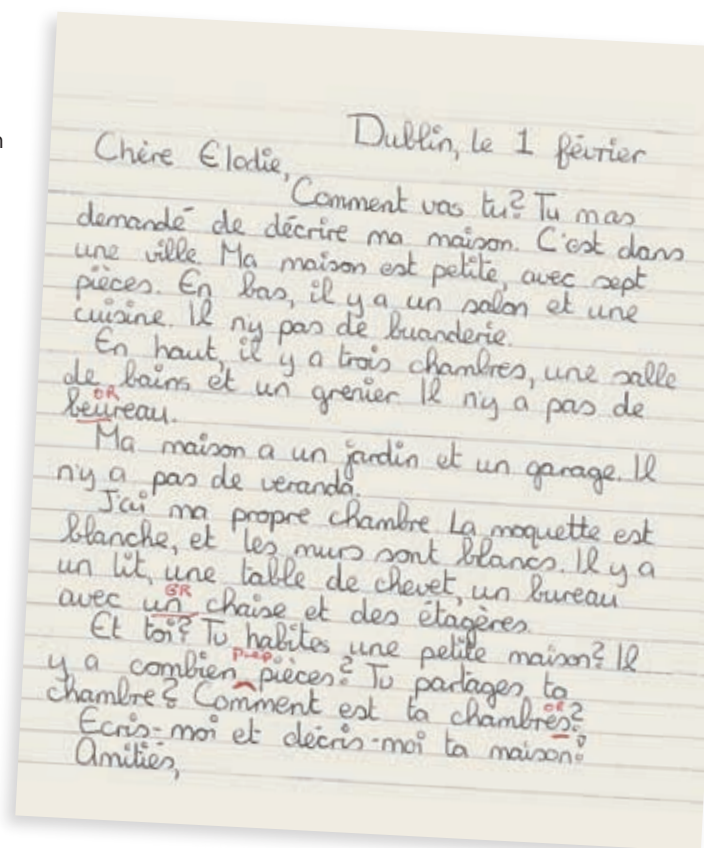 n
Dublin, le 1 février
Chère Elodie,
Comment vas tu? Tu mas
demandé de décrire ma maison. C'est dans
une ville. Ma maison est petite, avec sept
pièces. En bas, il y a un salon et une
cuisine. Il n'y pas de buanderie.
En haut, il y a trois chambres, une salle
de bains et un grenier. Il n'y a pas de
OR
beureau.
Ma maison a un jardin et un garage. Il
n'y a pas de veranda.
J'ai ma propre chambre. La moquette est
blanche, et les murs sont blancs. Il y a
un lit, une table de chevet, un bureau
GR
avec un chaise et des étagères.
Et toi? Tu habites une petite maison? Il
prep.
y a combien pièces? Tu partages ta
OR
chambre? Comment est ta chambres?
Ecris-moi et décris-moi ta maison!
Amitiés,